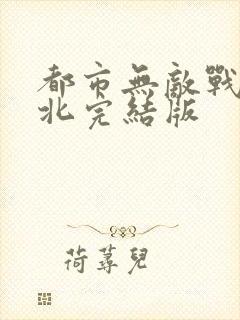 都市無敵戰
北完結版
荷蕁兒